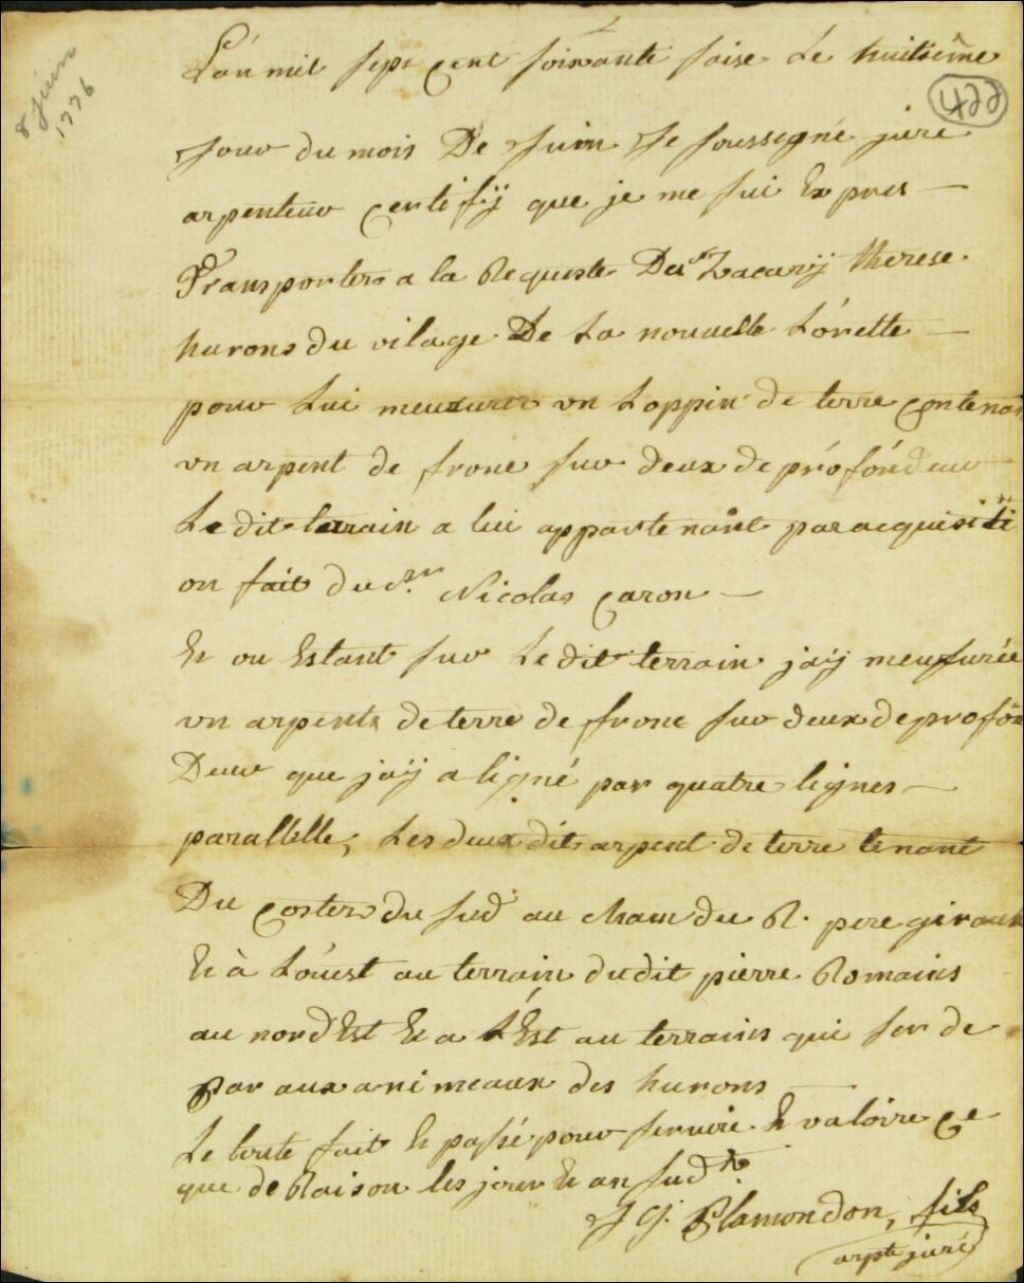 8 juin
1776
L'an mil sept cent soixante saise Le huitiême
422
Jour du mois De Juin Je soussegné juré
arpenteur certifÿ que je me sui Ex pres —
Transporter a la Requeste Du Zacarÿ therese.
hurons du vilage De La nouuelle Lórette —
pour Lui meuzurer un Loppin de terre contenan
un arpent de fronc sur deux de prófóndeur
Le dit terrain a lui appartenant par acquisiti
on fait du Sr. Nicolas Caron —
Et ou Estant sur Le dit terrain jaÿ meusurée
un arpents de terre de fronc sur deux de profón
Deur que jaÿ a ligné par quatre lignes —
parallelle, Les deux dits arpent de terre tenant
Du coster du sud au cham du R. pere giraul
Et à Lóuest au terrain dudit pierre Romains
au nord Est Et a L'Est au terrains qui ser de
Par aux animeaux des hurons —
Le toute fait Et passé pour seruire Et valoire ce
que de Raison les jour Et an sud.
J G. Plamondon, fils
arpt juré